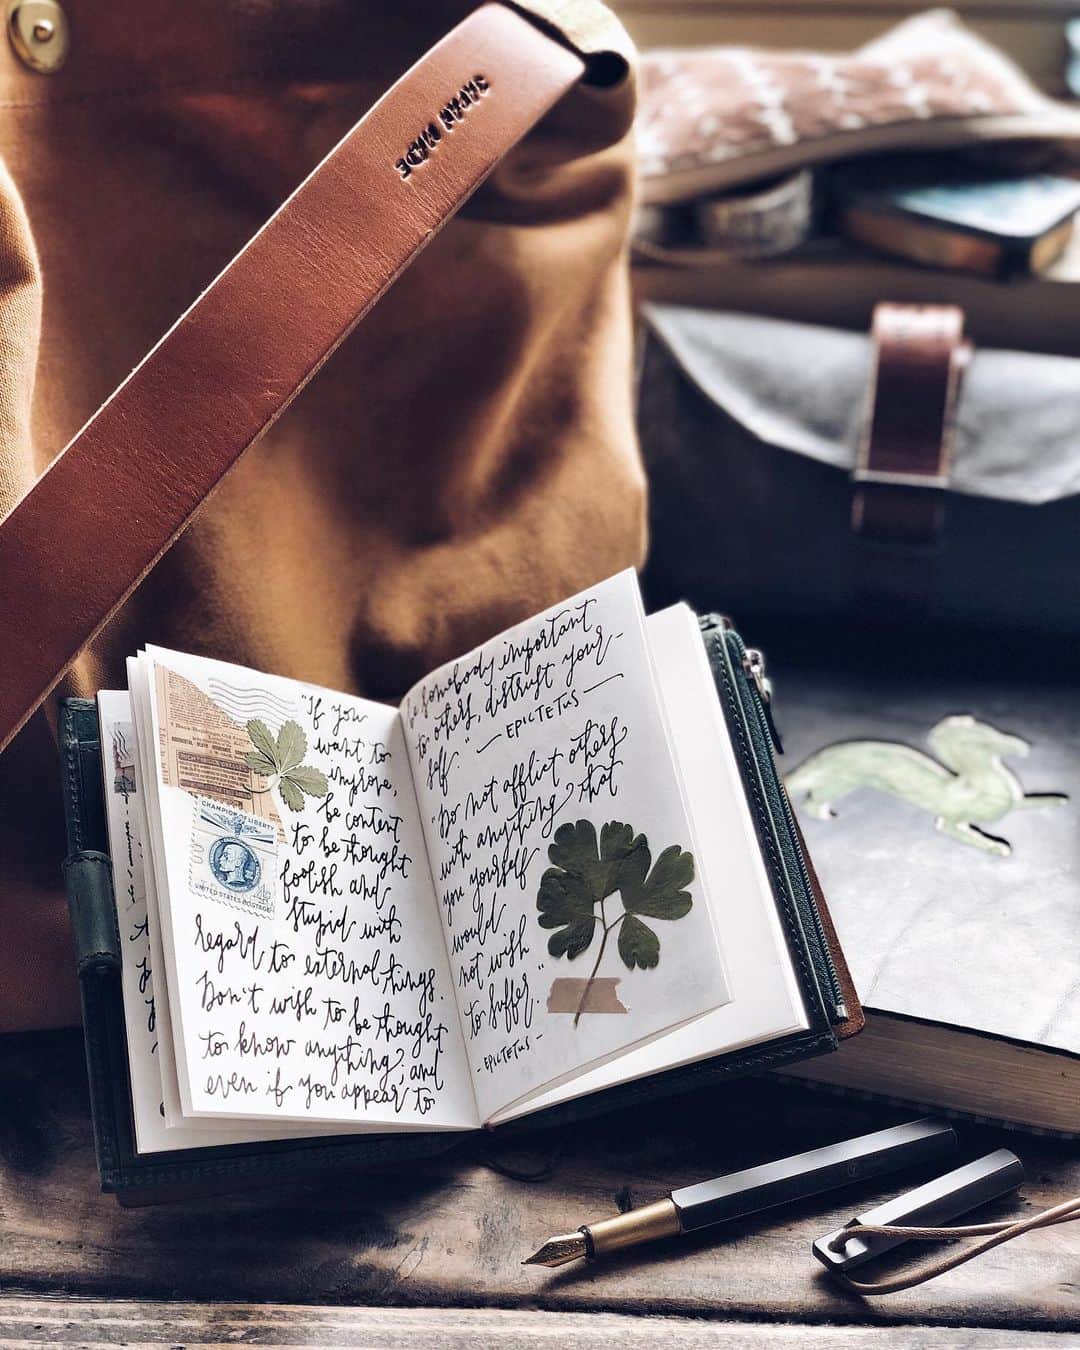 JAPAN MADE
"If you
want to
improve,
be content
to be thought
foolish and
stupid with
regard to external things.
Don't wish to be thought
to know anything; and
even if you appear to
CHAMPION OF LIBERTY
UNITED STATES POSTAGE
be somebody important
to others, distrust your-
self." — EPICTETUS —
"Do not afflict others
with anything that
you yourself
would
not wish
to suffer."
- EPICTETUS -